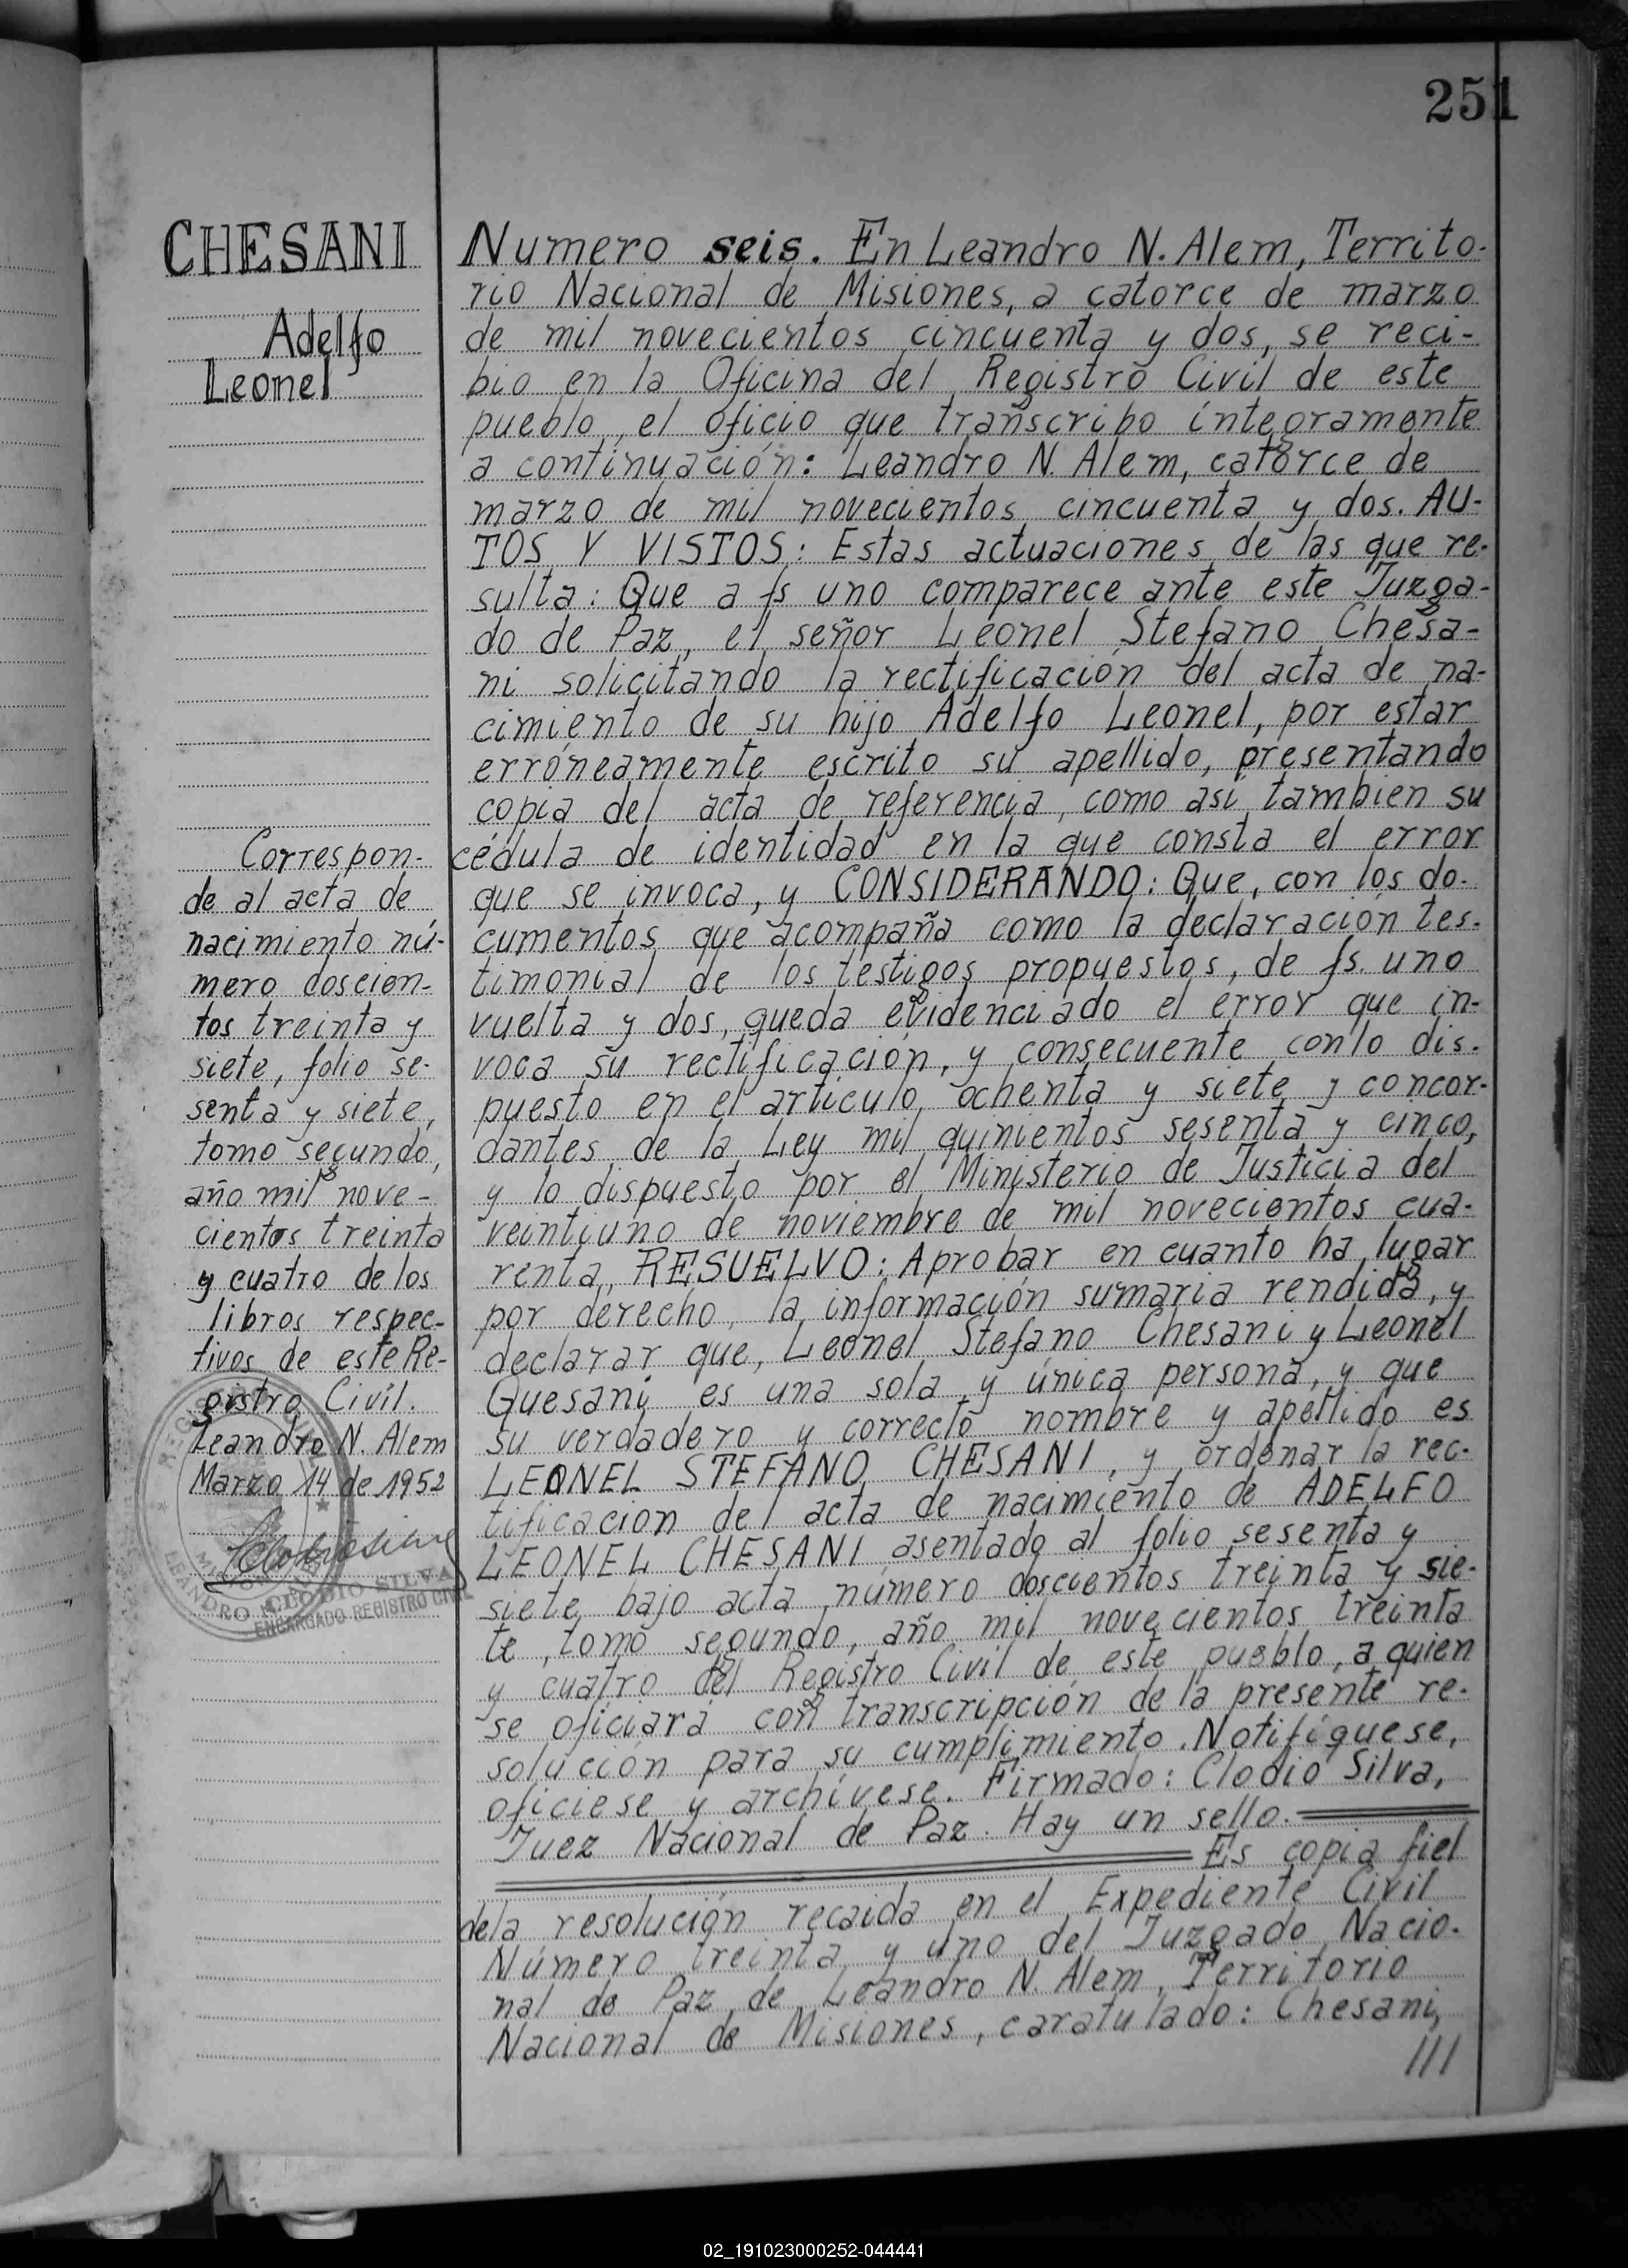 251
CHESANI
Adelfo
Leonel
Correspon-
de al acta de
nacimiento nú-
mero doscien-
tos treinta y
siete, folio se-
senta y siete,
tomo segundo,
año mil nove-
cientos treinta
y cuatro de los
libros respec-
tivos de este Re-
gistro Civil.
Leandro N. Alem
Marzo 14 de 1952
CLODIO SILVA
ENCARGADO REGISTRO CIVIL
Numero seis. En Leandro N. Alem, Territo-
rio Nacional de Misiones, a catorce de marzo
de mil novecientos cincuenta y dos, se reci-
bio en la Oficina del Registro Civil de este
pueblo, el oficio que transcribo íntegramente
a continuación: Leandro N. Alem, catorce de
marzo de mil novecientos cincuenta y dos. AU-
TOS Y VISTOS: Estas actuaciones de las que re-
sulta: Que a fs uno comparece ante este Juzga-
do de Paz, el señor Leonel Stefano Chesa-
ni solicitando la rectificación del acta de na-
cimiento de su hijo Adelfo Leonel, por estar
erróneamente escrito su apellido, presentando
copia del acta de referencia, como asi tambien su
cédula de identidad en la que consta el error
que se invoca, y CONSIDERANDO: Que, con los do-
cumentos que acompaña como la declaración tes-
timonial de los testigos propuestos, de fs. uno
vuelta y dos, queda evidenciado el error que in-
voca su rectificación, y consecuente con lo dis-
puesto en el artículo ochenta y siete y concor-
dantes de la Ley mil quinientos sesenta y cinco,
y lo dispuesto por el Ministerio de Justicia del
veintiuno de noviembre de mil novecientos cua-
renta, RESUELVO: Aprobar en cuanto ha lugar
por derecho, la información sumaria rendida, y
declarar que, Leonel Stefano Chesani y Leonel
Quesani es una sola y única persona, y que
su verdadero y correcto nombre y apellido es
LEONEL STEFANO CHESANI, y ordenar la rec-
tificacion del acta de nacimiento de ADELFO
LEONEL CHESANI asentado al folio sesenta y
siete bajo acta número doscientos treinta y sie-
te, tomo segundo, año mil novecientos treinta
y cuatro del Registro Civil de este pueblo, a quien
se oficiará con transcripción de la presente re-
solución para su cumplimiento. Notifíquese,
ofíciese y archívese. Firmado: Clodio Silva,
Juez Nacional de Paz. Hay un sello.
Es copia fiel
de la resolución recaida en el Expediente Civil
Número treinta y uno del Juzgado Nacio-
nal de Paz de Leandro N. Alem, Territorio
Nacional de Misiones, caratulado: Chesani,
///
02_191023000252-044441